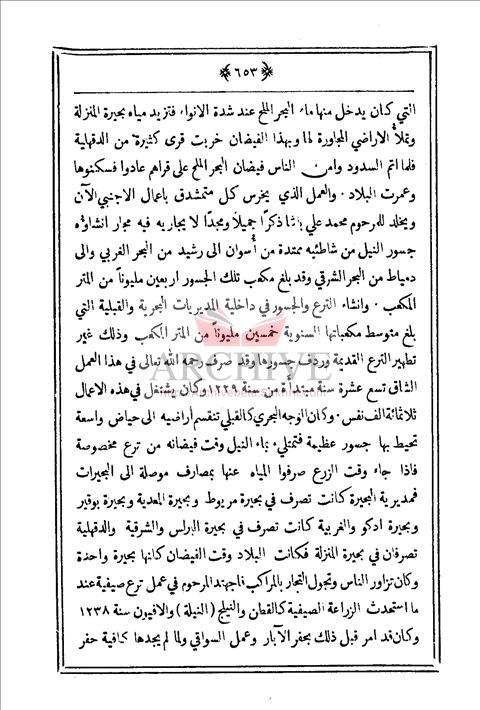 ﴿ ٦٥٣ ﴾
التي كان يدخل منها ماء البحر الملح عند شدة الانواء فتزيد مياه بحيرة المنزلة
وتملأ الاراضي المجاورة لها وبهذا الفيضان خربت قرى كثيرة من الدقهلية
فلما اتم السدود وامن الناس فيضان البحر الملح على قراهم عادوا فسكنوها
وعمرت البلاد . والعمل الذي يخرس كل متمشدق باعمال الاجنبي الآن
ويخلد للمرحوم محمد علي باشا ذكرًا جميلاً ومجدًا لا يجاريه فيه مجار انشاؤه
جسور النيل من شاطئيه ممتدة من أسوان الى رشيد من البحر الغربي والى
دمياط من البحر الشرقي وقد بلغ مكعب تلك الجسور اربعين مليونًا من المتر
المكعب . وانشاء الترع والجسور في داخلية المديريات البحرية والقبلية التي
بلغ متوسط مكعباتها السنوية خمسين مليونًا من المتر المكعب وذلك غير
تطهير الترع القديمة وردف جسورها وقد صرف رحمه الله تعالى في هذا العمل
الشاق تسع عشرة سنة مبتدأة من سنة ١٢٢٩ وكان يشتغل في هذه الاعمال
ثلاثمائة الف نفس . وكان الوجه البحري كالقبلي تنقسم أراضيه الى حياض واسعة
تحيط بها جسور عظيمة فتمتلي بماء النيل وقت فيضانه من ترع مخصوصة
فاذا جاء وقت الزرع صرفوا المياه عنها بمصارف موصلة الى البحيرات
فمديرية البحيرة كانت تصرف في بحيرة مريوط وبحيرة المعدية وبحيرة بوقير
وبحيرة ادكو والغربية كانت تصرف في بحيرة البرلس والشرقية والدقهلية
تصرفان في بحيرة المنزلة فكانت البلاد وقت الفيضان كانها بحيرة واحدة
وكان تزاور الناس وتجول التجار بالمراكب فاجتهد المرحوم في عمل ترع صيفية عند
ما استحدث الزراعة الصيفية كالقطن والنيلج (النيلة) والافيون سنة ١٢٣٨
وكان قد امر قبل ذلك بحفر الآبار وعمل السواقي ولما لم يجدها كافية حفر
ARCHIVE